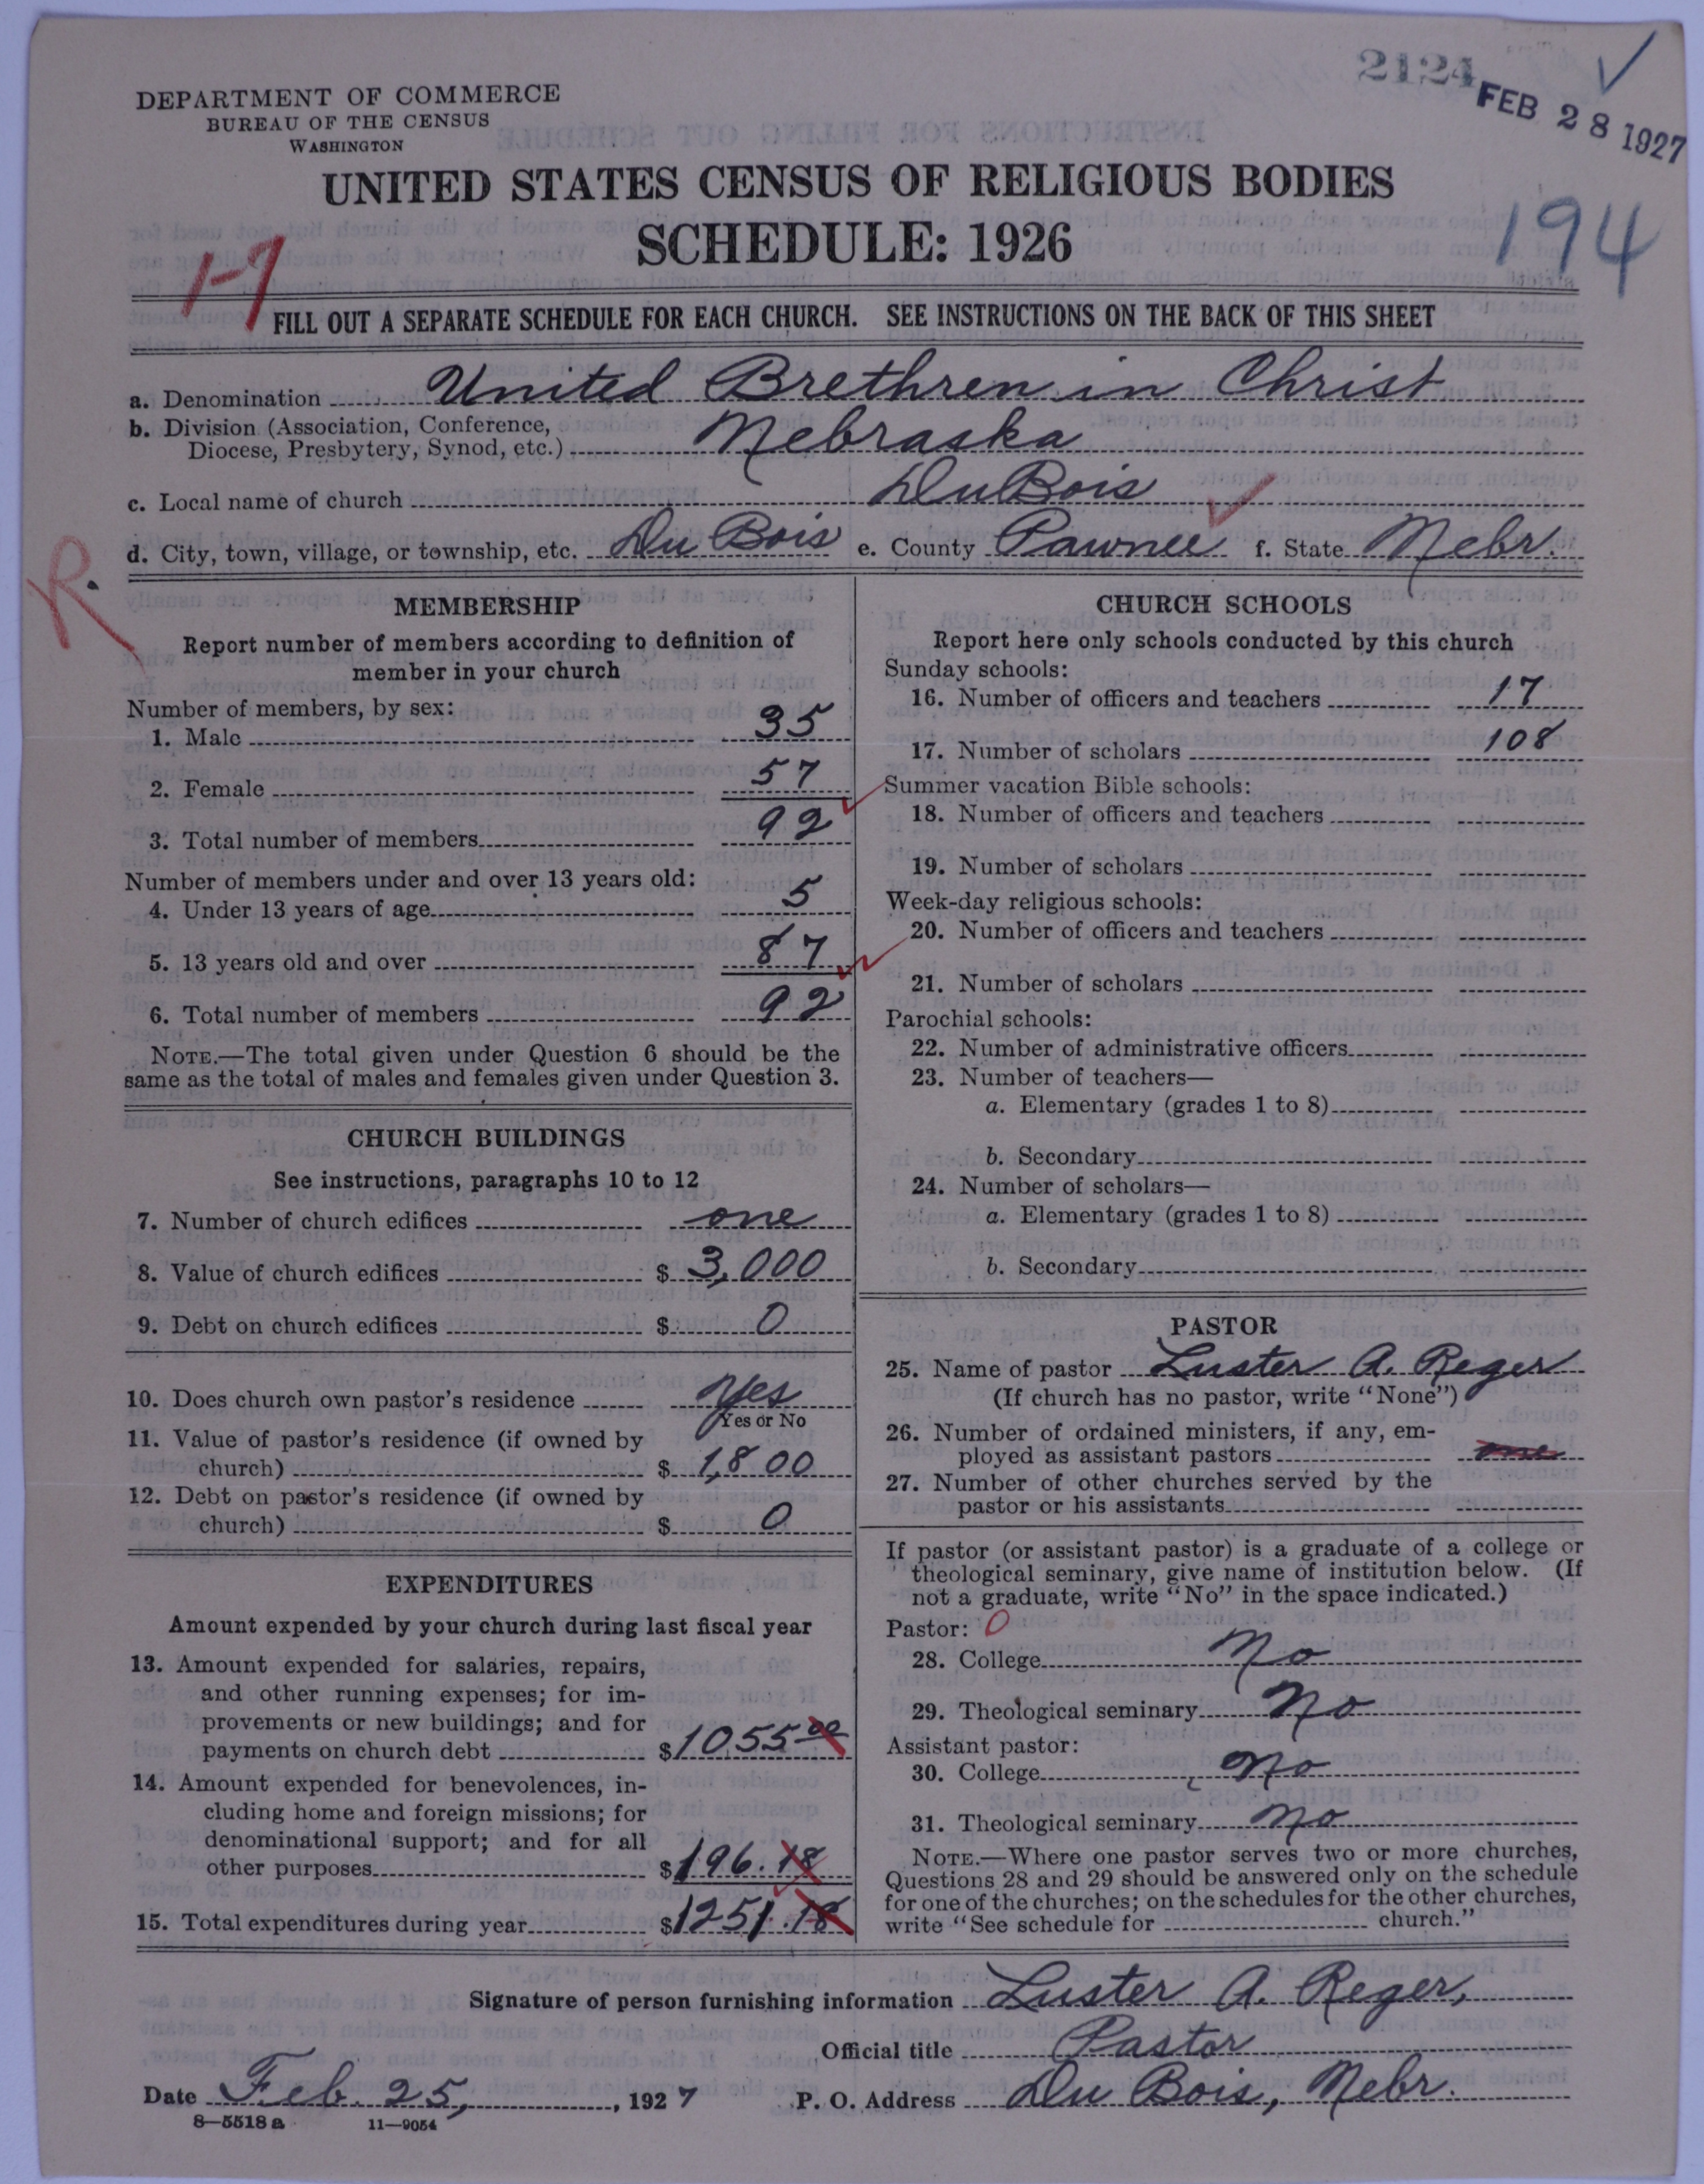 2124
FEB 28 1927
DEPARTMENT OF COMMERCE
BUREAU OF THE CENSUS
WASHINGTON
UNITED STATES CENSUS OF RELIGIOUS BODIES
SCHEDULE: 1926
194
1-9
FILL OUT A SEPARATE SCHEDULE FOR EACH CHURCH. SEE INSTRUCTIONS ON THE BACK OF THIS SHEET
a. Denomination United Brethren in Christ
b. Division (Association, Conference, Diocese, Presbytery, Synod, etc.) Nebraska
c. Local name of church DuBois
d. City, town, village, or township, etc. Du Bois e. County Pawnee f. State Nebr.
R.
MEMBERSHIP
Report number of members according to definition of
member in your church
Number of members, by sex:
1. Male 35
2. Female 57
3. Total number of members 92
Number of members under and over 13 years old:
4. Under 13 years of age 5
5. 13 years old and over 87
6. Total number of members 92
NOTE.—The total given under Question 6 should be the
same as the total of males and females given under Question 3.
CHURCH BUILDINGS
See instructions, paragraphs 10 to 12
7. Number of church edifices one
8. Value of church edifices $ 3,000
9. Debt on church edifices $ 0
10. Does church own pastor's residence Yes
Yes or No
11. Value of pastor's residence (if owned by
church) $ 1,800
12. Debt on pastor's residence (if owned by
church) $ 0
EXPENDITURES
Amount expended by your church during last fiscal year
13. Amount expended for salaries, repairs,
and other running expenses; for im-
provements or new buildings; and for
payments on church debt $1055 00
14. Amount expended for benevolences, in-
cluding home and foreign missions; for
denominational support; and for all
other purposes $196.18
15. Total expenditures during year $1251.18
CHURCH SCHOOLS
Report here only schools conducted by this church
Sunday schools:
16. Number of officers and teachers 17
17. Number of scholars 108
Summer vacation Bible schools:
18. Number of officers and teachers
19. Number of scholars
Week-day religious schools:
20. Number of officers and teachers
21. Number of scholars
Parochial schools:
22. Number of administrative officers
23. Number of teachers—
a. Elementary (grades 1 to 8)
b. Secondary
24. Number of scholars—
a. Elementary (grades 1 to 8)
b. Secondary
PASTOR
25. Name of pastor Luster A. Reger
(If church has no pastor, write "None")
26. Number of ordained ministers, if any, em-
ployed as assistant pastors one
27. Number of other churches served by the
pastor or his assistants
If pastor (or assistant pastor) is a graduate of a college or
theological seminary, give name of institution below. (If
not a graduate, write "No" in the space indicated.)
Pastor: 0
28. College No
29. Theological seminary No
Assistant pastor:
30. College No
31. Theological seminary No
NOTE.—Where one pastor serves two or more churches,
Questions 28 and 29 should be answered only on the schedule
for one of the churches; on the schedules for the other churches,
write "See schedule for church."
Signature of person furnishing information Luster A. Reger,
Official title Pastor
Date Feb. 25, 1927 P. O. Address Du Bois, Nebr.
8—5518 a 11—9054